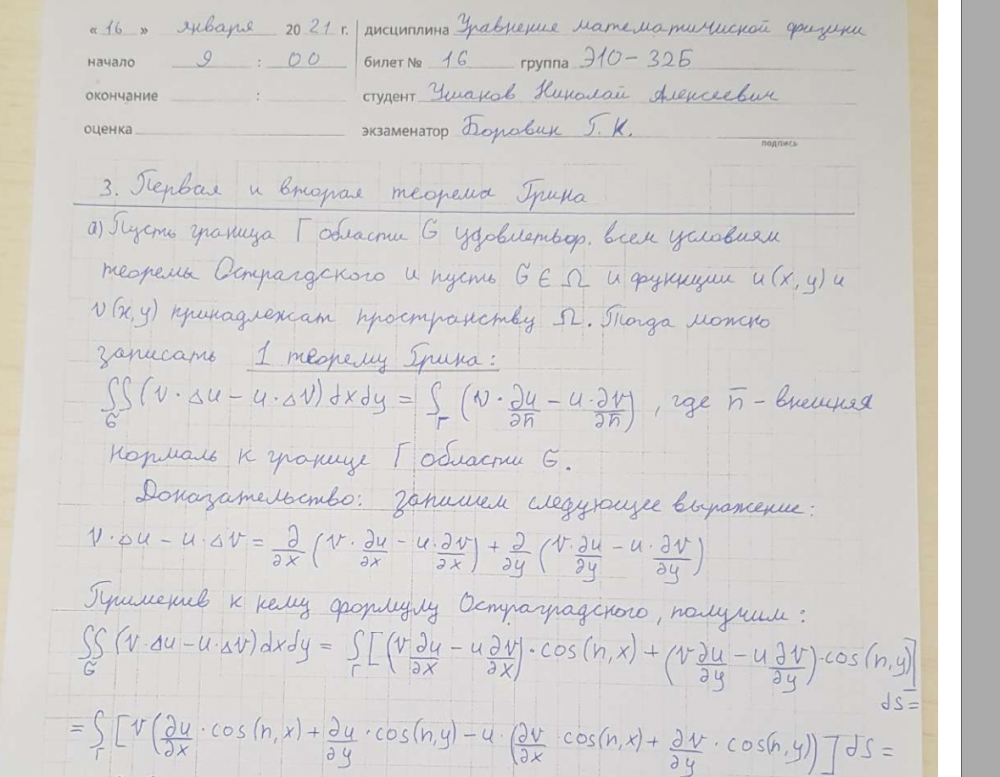 « 16 » января 20 21 г. дисциплина Уравнение математической физики
начало 9 : 00 билет № 16 группа Э10-32Б
окончание : студент Ушаков Николай Алексеевич
оценка экзаменатор Боровик Г. К.
подпись
3. Первая и вторая теорема Грина
а) Пусть граница Г области G удовлетвор. всем условиям
теоремы Острагдского и пусть G ∈ Ω и функции u(x,y) и
v(x,y) принадлежат пространству Ω. Тогда можно
записать 1 теорему Грина:
∬_G (v·Δu − u·Δv) dxdy = ∫_Г (v·∂u/∂n̄ − u·∂v/∂n̄), где n̄ – внешняя
нормаль к границе Г области G.
Доказательство: запишем следующее выражение:
v·Δu − u·Δv = ∂/∂x (v·∂u/∂x − u·∂v/∂x) + ∂/∂y (v·∂u/∂y − u·∂v/∂y)
Применив к нему формулу Остраградского, получим:
∬_G (v·Δu − u·Δv) dxdy = ∫_Г [(v ∂u/∂x − u ∂v/∂x)·cos(n,x) + (v ∂u/∂y − u ∂v/∂y)·cos(n,y)]
ds =
= ∫_Г [v(∂u/∂x·cos(n,x) + ∂u/∂y·cos(n,y) − u·(∂v/∂x·cos(n,x) + ∂v/∂y·cos(n,y))] ds =